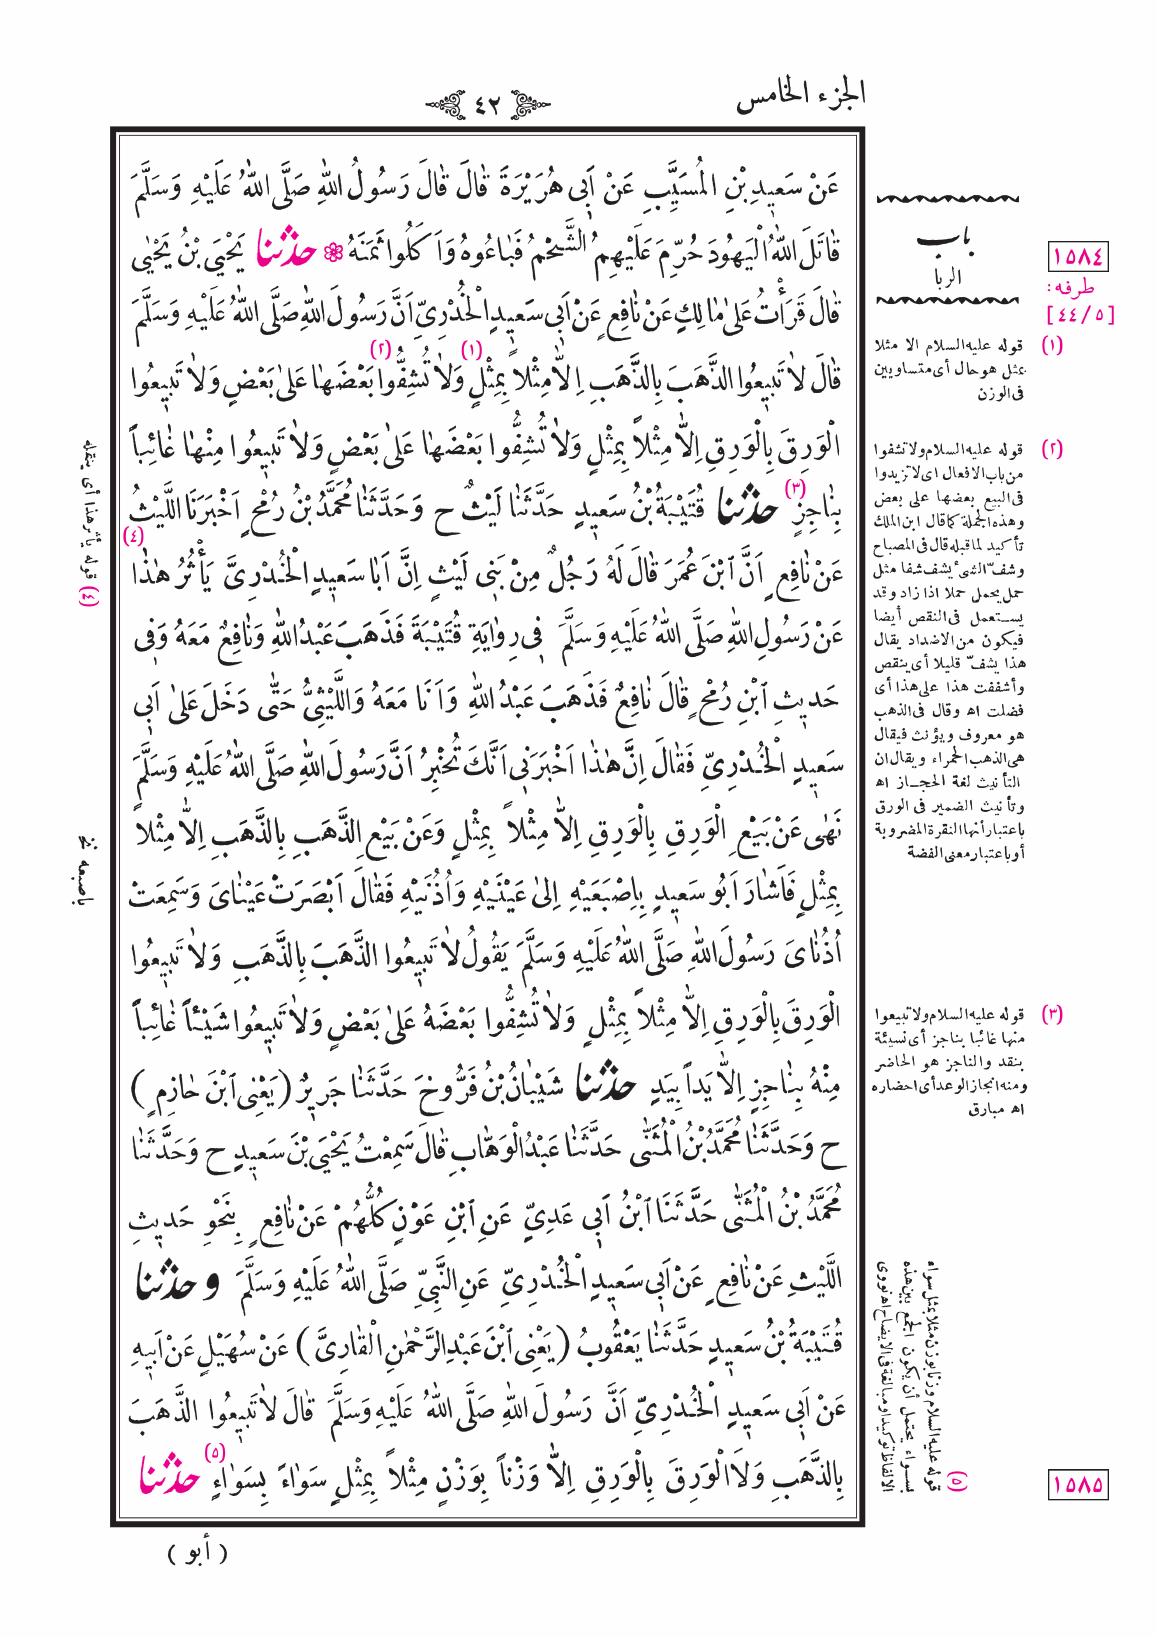 الجزء الخامس
٤٢
عَنْ سَعِيدِ بْنِ الْمُسَيَّبِ عَنْ اَبِى هُرَيْرَةَ قَالَ قَالَ رَسُولُ اللهِ صَلَّى اللهُ عَلَيْهِ وَسَلَّمَ
قَاتَلَ اللهُ الْيَهُودَ حُرِّمَ عَلَيْهِمُ الشَّحْمُ فَبَاعُوهُ وَاَكَلُوا ثَمَنَهُ ❁ حدثنا يَحْيَى بْنُ يَحْيٰى
قَالَ قَرَأْتُ عَلىٰ مَالِكٍ عَنْ نَافِعٍ عَنْ اَبِى سَعِيدٍ الْخُدْرِىِّ اَنَّ رَسُولَ اللهِ صَلَّى اللهُ عَلَيْهِ وَسَلَّمَ
قَالَ لَا تَبِيعُوا الذَّهَبَ بِالذَّهَبِ اِلَّا مِثْلاً بِمِثْلٍ (١) وَلَا تُشِفُّوا (٢) بَعْضَهَا عَلىٰ بَعْضٍ وَلَا تَبِيعُوا
الْوَرِقَ بِالْوَرِقِ اِلَّا مِثْلاً بِمِثْلٍ وَلَا تُشِفُّوا بَعْضَهَا عَلىٰ بَعْضٍ وَلَا تَبِيعُوا مِنْهَا غَائِباً
بِنَاجِزٍ (٣) حدثنا قُتَيْبَةُ بْنُ سَعِيدٍ حَدَّثَنَا لَيْثٌ ح وَحَدَّثَنَا مُحَمَّدُ بْنُ رُمْحٍ اَخْبَرَنَا اللَّيْثُ
عَنْ نَافِعٍ اَنَّ ابْنَ عُمَرَ قَالَ لَهُ رَجُلٌ مِنْ بَنِى لَيْثٍ اِنَّ اَبَا سَعِيدٍ الْخُدْرِىَّ يَأْثُرُ هٰذَا (٤)
عَنْ رَسُولِ اللهِ صَلَّى اللهُ عَلَيْهِ وَسَلَّمَ فِى رِوَايَةِ قُتَيْبَةَ فَذَهَبَ عَبْدُ اللهِ وَنَافِعٌ مَعَهُ وَفِى
حَدِيثِ ابْنِ رُمْحٍ قَالَ نَافِعٌ فَذَهَبَ عَبْدُ اللهِ وَاَنَا مَعَهُ وَاللَّيْثِىُّ حَتّٰى دَخَلَ عَلىٰ اَبِى
سَعِيدٍ الْخُدْرِىِّ فَقَالَ اِنَّ هٰذَا اَخْبَرَنِى اَنَّكَ تُخْبِرُ اَنَّ رَسُولَ اللهِ صَلَّى اللهُ عَلَيْهِ وَسَلَّمَ
نَهٰى عَنْ بَيْعِ الْوَرِقِ بِالْوَرِقِ اِلَّا مِثْلاً بِمِثْلٍ وَعَنْ بَيْعِ الذَّهَبِ بِالذَّهَبِ اِلَّا مِثْلاً
بِمِثْلٍ فَاَشَارَ اَبُو سَعِيدٍ بِاِصْبَعَيْهِ اِلىٰ عَيْنَيْهِ وَاُذُنَيْهِ فَقَالَ اَبْصَرَتْ عَيْنَاىَ وَسَمِعَتْ
اُذُنَاىَ رَسُولَ اللهِ صَلَّى اللهُ عَلَيْهِ وَسَلَّمَ يَقُولُ لَا تَبِيعُوا الذَّهَبَ بِالذَّهَبِ وَلَا تَبِيعُوا
الْوَرِقَ بِالْوَرِقِ اِلَّا مِثْلاً بِمِثْلٍ وَلَا تُشِفُّوا بَعْضَهُ عَلىٰ بَعْضٍ وَلَا تَبِيعُوا شَيْئاً غَائِباً
مِنْهُ بِنَاجِزٍ اِلَّا يَداً بِيَدٍ حدثنا شَيْبَانُ بْنُ فَرُّوخَ حَدَّثَنَا جَرِيرٌ (يَعْنِى ابْنَ حَازِمٍ)
ح وَحَدَّثَنَا مُحَمَّدُ بْنُ الْمُثَنّٰى حَدَّثَنَا عَبْدُ الْوَهَّابِ قَالَ سَمِعْتُ يَحْيَى بْنَ سَعِيدٍ ح وَحَدَّثَنَا
مُحَمَّدُ بْنُ الْمُثَنّٰى حَدَّثَنَا ابْنُ اَبِى عَدِىٍّ عَنِ ابْنِ عَوْنٍ كُلُّهُمْ عَنْ نَافِعٍ بِنَحْوِ حَدِيثِ
اللَّيْثِ عَنْ نَافِعٍ عَنْ اَبِى سَعِيدٍ الْخُدْرِىِّ عَنِ النَّبِىِّ صَلَّى اللهُ عَلَيْهِ وَسَلَّمَ وحدثنا
قُتَيْبَةُ بْنُ سَعِيدٍ حَدَّثَنَا يَعْقُوبُ (يَعْنِى ابْنَ عَبْدِ الرَّحْمٰنِ الْقَارِىَّ) عَنْ سُهَيْلٍ عَنْ اَبِيهِ
عَنْ اَبِى سَعِيدٍ الْخُدْرِىِّ اَنَّ رَسُولَ اللهِ صَلَّى اللهُ عَلَيْهِ وَسَلَّمَ قَالَ لَا تَبِيعُوا الذَّهَبَ
بِالذَّهَبِ وَلَا الْوَرِقَ بِالْوَرِقِ اِلَّا وَزْناً بِوَزْنٍ مِثْلاً بِمِثْلٍ سَوَاءً بِسَوَاءٍ (٥) حدثنا
( أبو )
باب
الربا
١٥٨٤
طرفه :
[٤٤/٥]
(١) قوله عليه السلام الا مثلا
بمثل هو حال أى متساويين
فى الوزن
(٢) قوله عليه السلام ولا تشفوا
من باب الافعال اى لا تزيدوا
فى البيع بعضها على بعض
وهذه الجملة كما قال ابن الملك
تأكيد لما قبله قال فى المصباح
وشفّ الشىء يشف شفا مثل
حمل يحمل حملا اذا زاد وقد
يستعمل فى النقص أيضا
فيكون من الاضداد يقال
هذا يشفّ قليلا أى ينقص
وأشففت هذا على هذا أى
فضلت اه وقال فى الذهب
هو معروف ويؤنث فيقال
هى الذهب الحمراء ويقال ان
التأنيث لغة الحجاز اه
وتأنيث الضمير فى الورق
باعتبار أنها النقرة المضروبة
أو باعتبار معنى الفضة
(٣) قوله عليه السلام ولا تبيعوا
منها غائبا بناجز أى نسيئة
بنقد والناجز هو الحاضر
ومنه انجاز الوعد أى احضاره
اه مبارق
(٤) قوله يأثر هذا أى ينقله
باصبعه نخ
(٥) قوله عليه السلام وزنا بوزن مثلا بمثل سواء
بسواء يحتمل أن يكون الجمع بين هذه
الالفاظ توكيدا ومبالغة فى الايضاح اه نووى
١٥٨٥